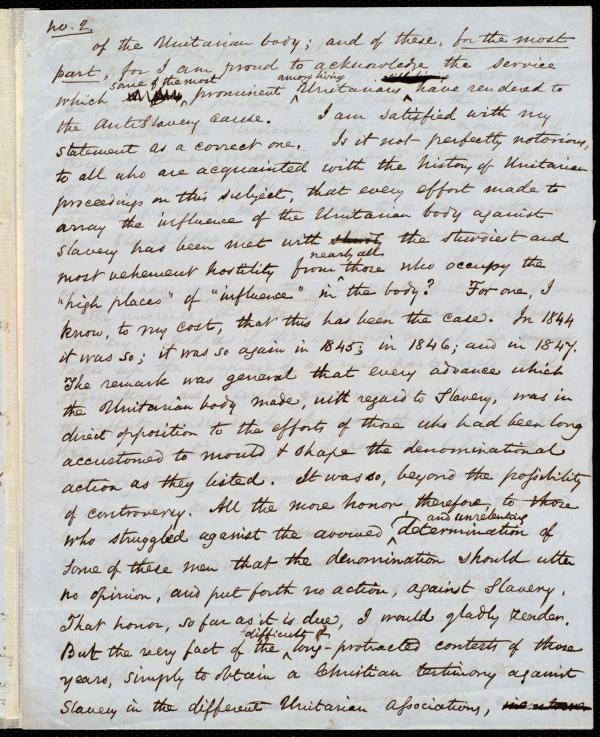 no. 2.
of the Unitarian body; and of these, for the most
part, for I am proud to acknowledge the service
which some of the most prominent among living Unitarians have rendered to
the antislavery cause. I am satisfied with my
statement as a correct one. Is it not perfectly notorious,
to all who are acquainted with the history of Unitarian
proceedings on this subject, that every effort made to
array the influence of the Unitarian body against
Slavery has been met with the sturdiest and
most vehement hostility from nearly all those who occupy the
"high places" of "influence" in the body? For one, I
know, to my cost, that this has been the case. In 1844
it was so; it was so again in 1845; in 1846; and in 1847.
The remark was general that every advance which
the Unitarian body made, with regard to Slavery, was in
direct opposition to the efforts of those who had been long
accustomed to mould & shape the denominational
action as they listed. It was so, beyond the possibility
of controversy. All the more honor, therefore, to those
who struggled against the avowed and unrelenting determination of
some of these men that the denomination should utter
no opinion, and put forth no action, against Slavery.
That honor, so far as it is due, I would gladly render.
But the very fact of the difficult & long-protracted contests of those
years, simply to obtain a Christian testimony against
Slavery in the different Unitarian Associations,